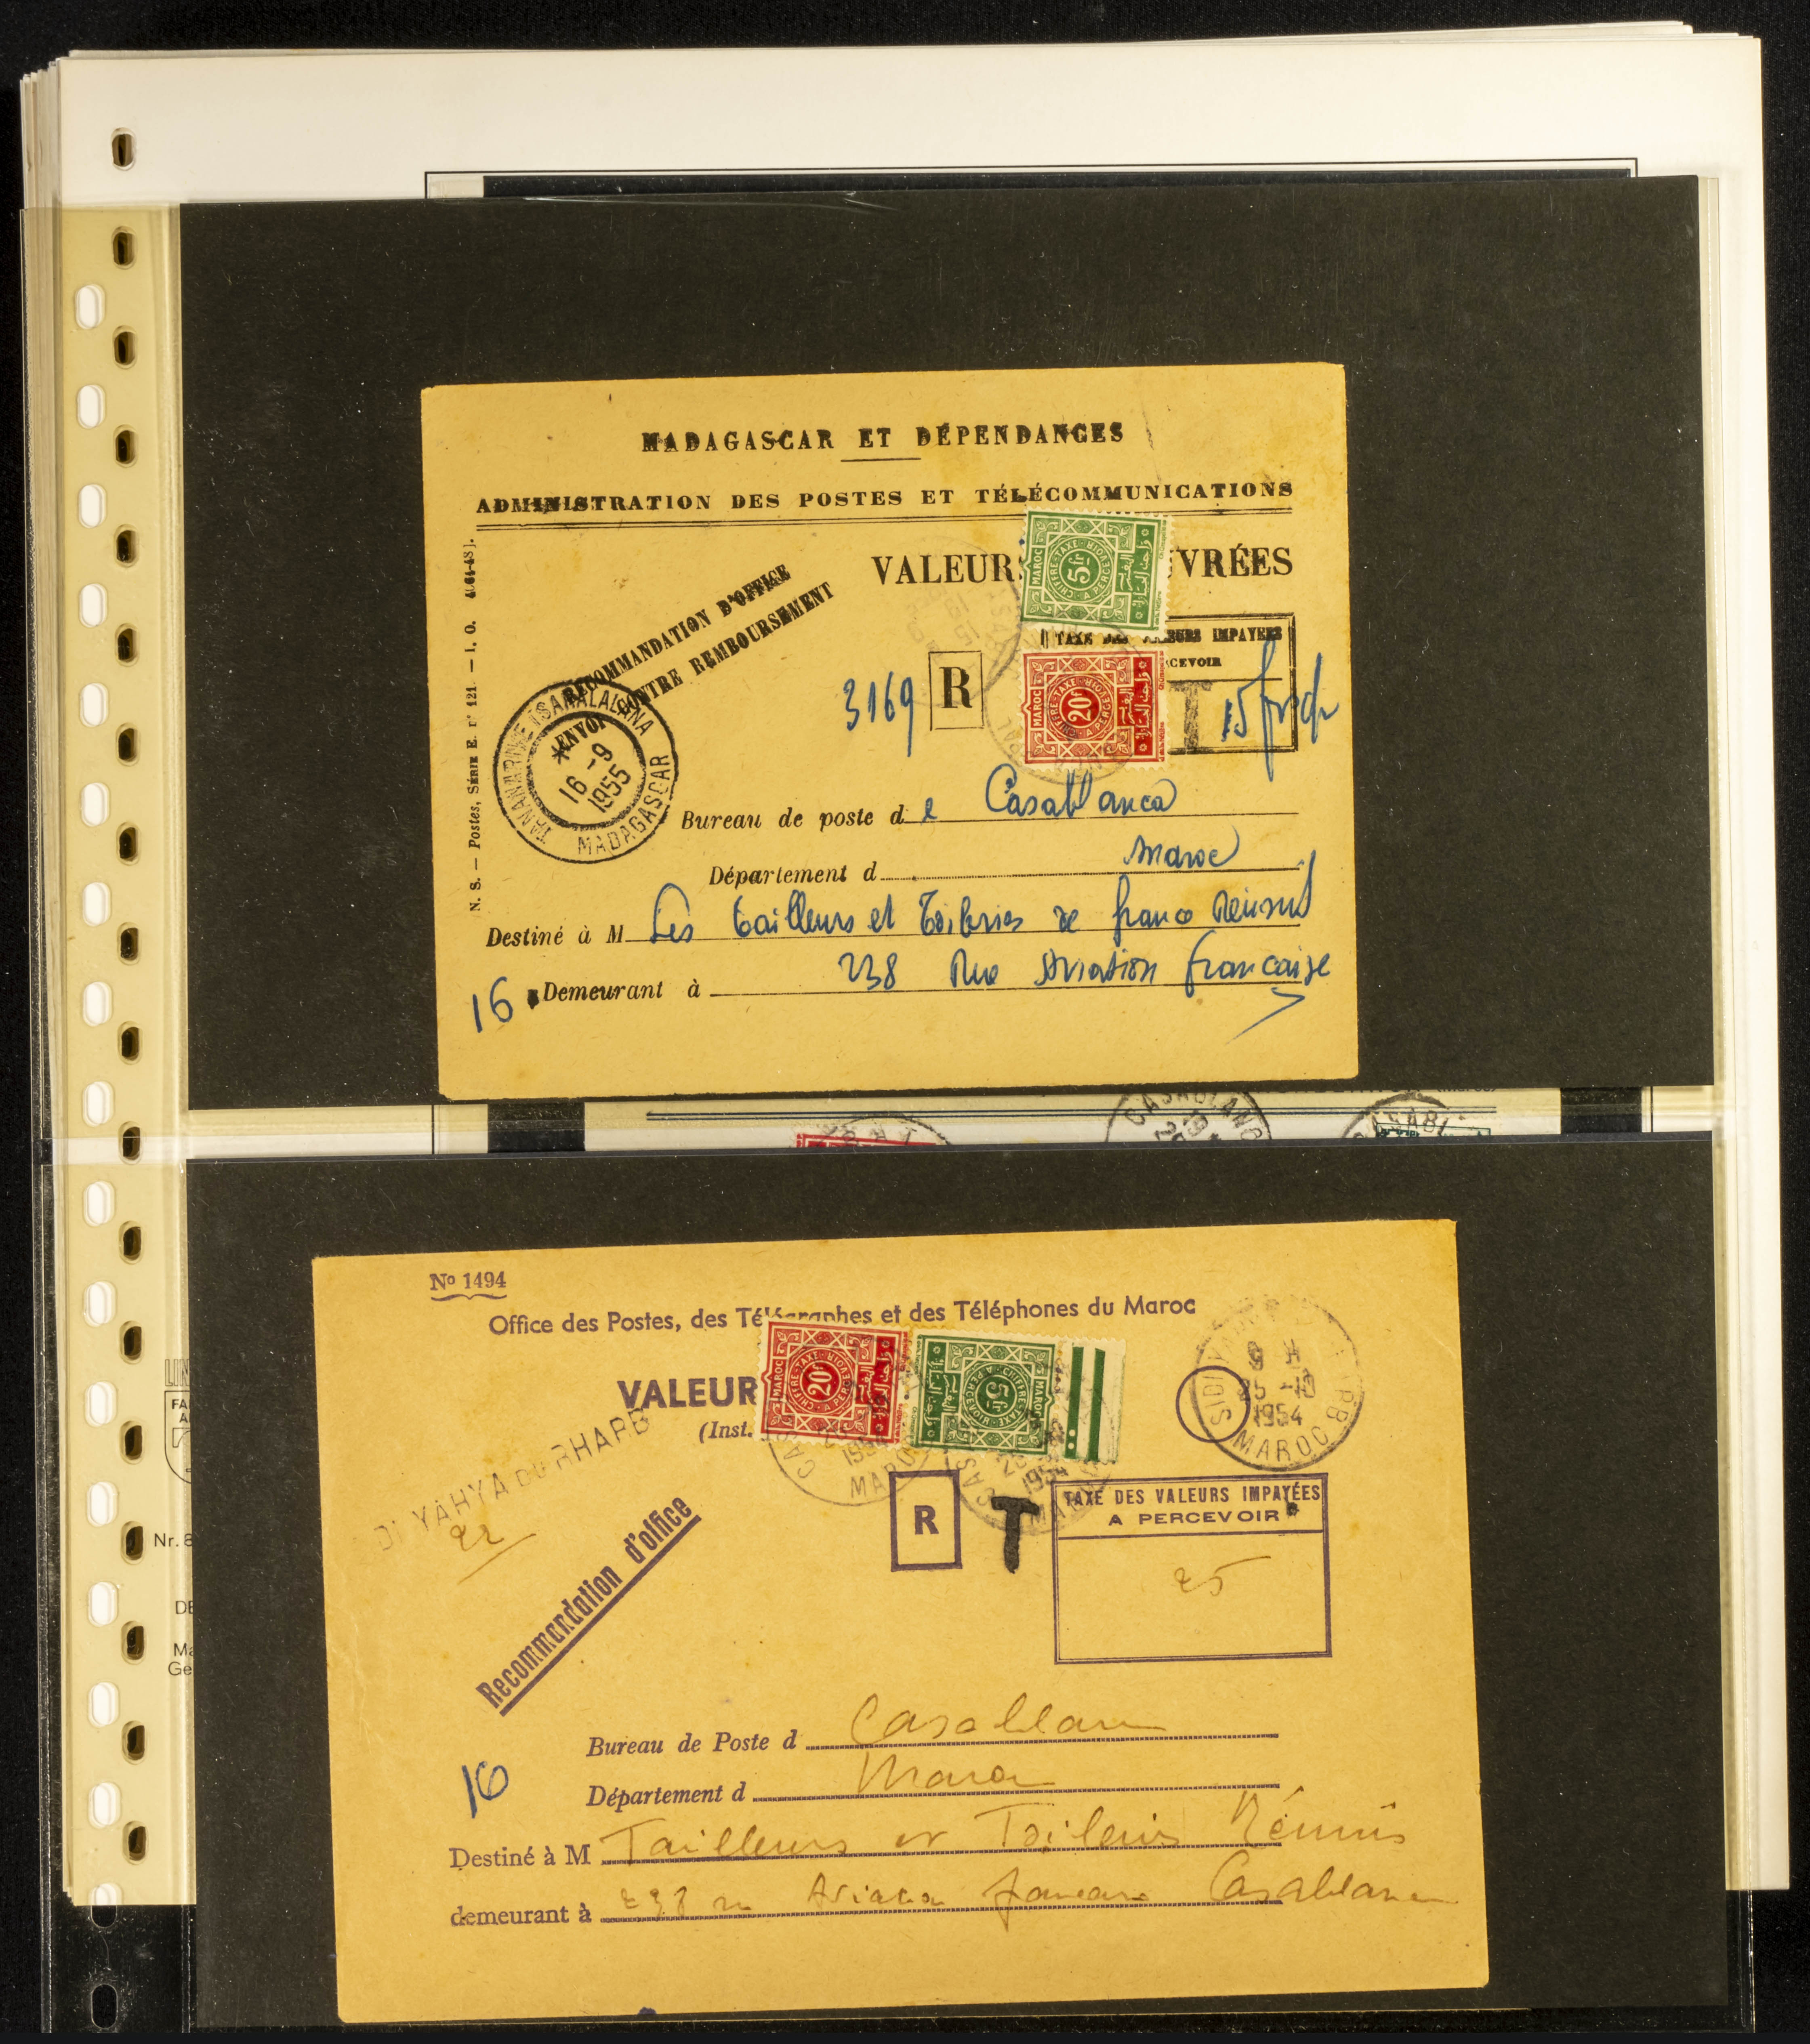 MADAGASCAR ET DÉPENDANCES
ADMINISTRATION DES POSTES ET TÉLÉCOMMUNICATIONS
VALEURS VRÉES
RECOMMANDATION D'OFFICE
ENVOI CONTRE REMBOURSEMENT
N. S. — Postes, Série E. n° 121. — I. O.
MAROC
CHIFFRE-TAXE · A PERCEVOIR
5fr
TAXE DES VALEURS IMPAYÉES
CEVOIR
3169 R
MAROC
CHIFFRE-TAXE · A PERCEVOIR
20fr
T
15 fr
TANANARIVE TSARALALANA
16 -9
1955
MADAGASCAR
Bureau de poste de Casablanca
Département d Maroc
Destiné à M Les Tailleurs et Toileries de France Réunis
16 Demeurant à 238 Rue Aviation française
CASABLANC
19
CASABL
No 1494
Office des Postes, des Télégraphes et des Téléphones du Maroc
VALEUR
(Inst.
MAROC
CHIFFRE-TAXE · A PERCEVOIR
20fr
MAROC
CHIFFRE-TAXE · A PERCEVOIR
5fr
CAS
1954
MAROC
CAS
1954
SIDI
25 -10
1954
MAROC
DI YAHYA DU RHARB
22
Recommandation d'office
R
T
TAXE DES VALEURS IMPAYÉES
A PERCEVOIR
25
Bureau de Poste d Casablanca
16
Département d Maroc
Destiné à M Tailleurs et Toileries Réunis
demeurant à 238 r Aviation française Casablanca
LIN
FA
Nr. 8
DE
Ma
Ge